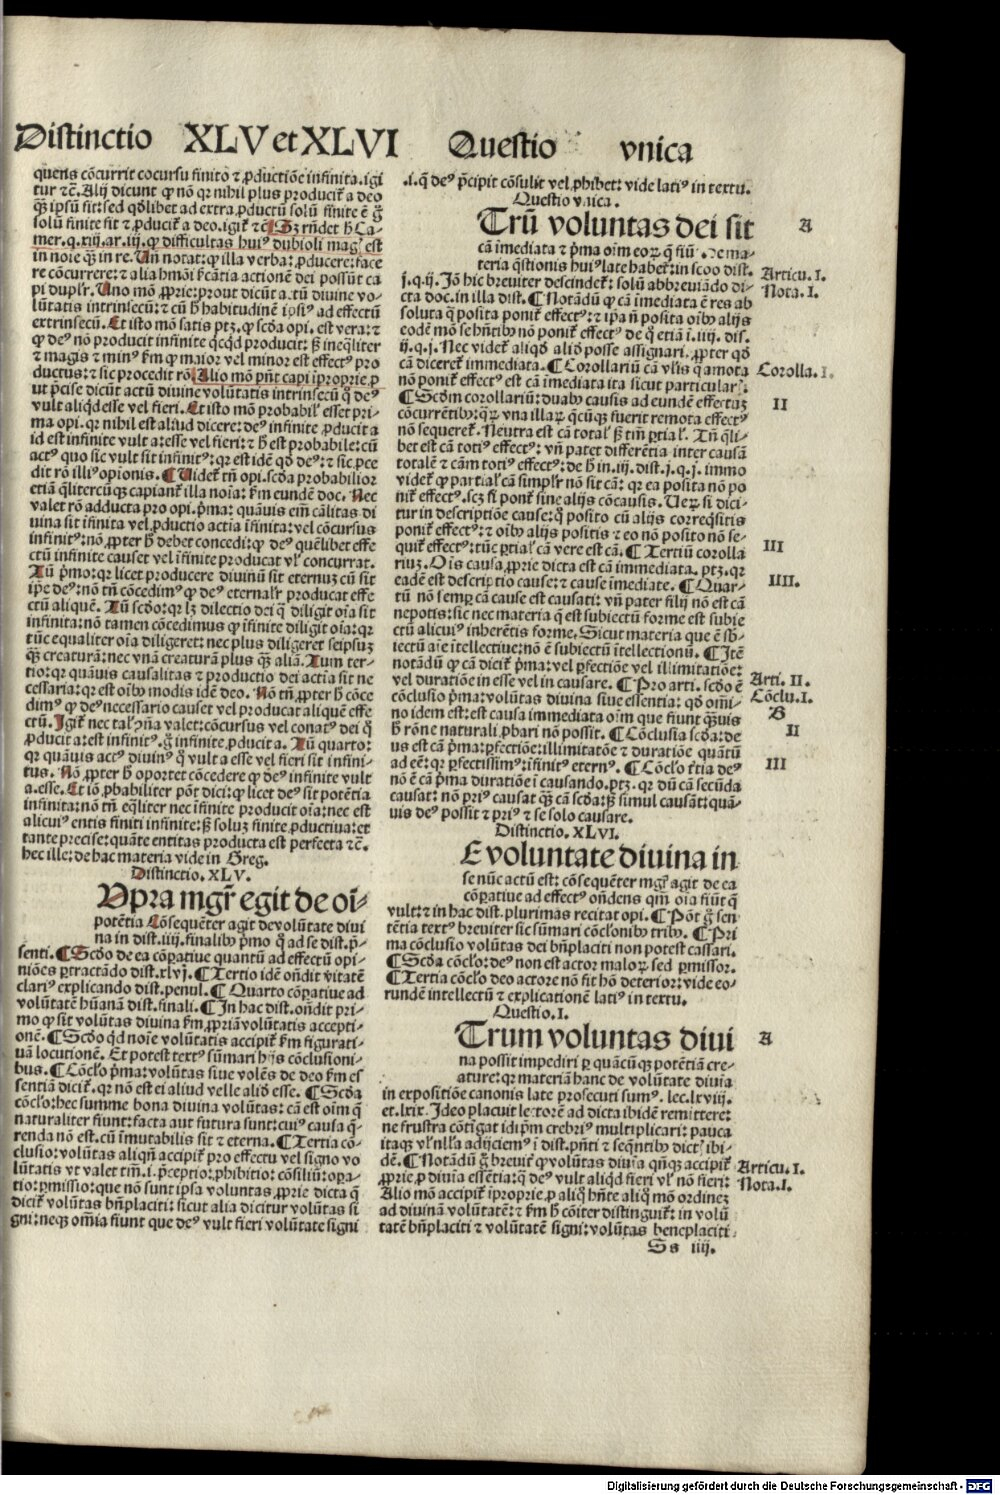 Distinctio XLV et XLVI Questio vnica
queris cõcurrit cõcursu finito ⁊ ꝓductiõe infinita. igi
tur ⁊c̃. Alij dicunt ꝙ nõ qꝛ nihil plus producit᷑ a deo
q̃ꝫ ipsũ sit: sed qđlibet ad extra ꝓductũ solũ finite ẽ g̃
solũ finite fit ⁊ ꝓducit᷑ a deo. igit᷑ ⁊c̃. Sꝫ rñdet h̃ Ca-
mer. q. xiij. ar. iij. ꝙ difficultas huiꝰ dubioli mag̃ est
in noĩe q̃ꝫ in re. Uñ notat: ꝙ illa verba: ꝓducere: face
re cõcurrere: ⁊ alia hmõi ħcãntia actionẽ dei possũt ca
pi duplr̃. Uno mõ ꝓprie: prout dicũt actũ divine vo-
lũtatis intrinsecũ: ⁊ cũ h̃ habitudinẽ ipsiꝰ ad effectũ
extrinsecũ. Et isto mõ satis ptꝫ. ꝙ scđa opi. est vera: ⁊
ꝙ deꝰ nõ producit infinite q̃cq̃d producit: ꝑ ineq̃liter
⁊ magis ⁊ minꝰ ẞm ꝙ maior vel minor est effectꝰ pro
ductus: ⁊ sic procedit rõ. Alio mõ pñt capi ĩproprie. ꝓ
ut p̃cise dicũt actũ divine volũtatis intrinsecũ q̃ deꝰ
vult aliq̃d esse vel fieri. Et isto mõ probabil᷑ esset pri-
ma opi. qꝛ nihil est aliud dicere: deꝰ infinite ꝓducit a
id est infinite vult a: esse vel fieri: ⁊ h̃ est probabile: cũ
actꝰ quo sic vult sit infinitꝰ: qꝛ est idẽ qđ deꝰ: ⁊ sic ꝓce
dit rõ illiꝰ opionis. ¶ Uidet᷑ tñ opi. scđa probabilior
etiã q̃litercũqꝫ capiant᷑ illa noĩa: ẞm eundẽ doc. Nec
valet rõ adducta pro opi. p̃ma: quãuis em̃ cãlitas di
uina sit ĩfinita vel ꝓductio actia ĩfinita: vel cõcursus
infinitꝰ: nõ ꝓpter h̃ debet concedi: ꝙ deꝰ quẽlibet effe
ctũ infinite causet vel ĩfinite producat vl᷑ concurrat.
Tũ p̃mo: qꝛ licet producere diuinũ sit eternuꝫ cũ sit
ip̃e deꝰ: nõ tñ cõcedimꝰ ꝙ deꝰ eternalr̃ producat effe
ctũ aliquẽ. Tũ scđo: qꝛ lꝫ dilectio dei q̃ diligit oĩa sit
infinita: nõ tamen cõcedimus ꝙ ĩfinite diligit oĩa: qꝛ
tũc equaliter oĩa diligeret: nec plus diligeret seipsuꝫ
q̃ꝫ creaturã: nec vnã creaturã plus q̃ꝫ aliã. Tum ter-
tio: qꝛ quãuis causalitas ⁊ productio dei actia sit ne
cessaria: qꝛ est oĩbꝰ modis idẽ deo. Nõ tñ ꝓpter h̃ cõce
dimꝰ ꝙ deꝰ necessario causet vel producat aliquẽ effe
ctũ. Igit᷑ nec tal᷑ ꝯñna valet: cõcursus vel conatꝰ dei q̃
ꝓducit a: est infinitꝰ. g̃ infinite ꝓducit a. Tũ quarto:
qꝛ quãuis actꝰ diuinꝰ q̃ vult a esse vel fieri sit infini-
tus. Nõ ꝓpter h̃ oportet cõcedere ꝙ deꝰ infinite vult
a. esse. Et iõ ꝓbabiliter põt dici: ꝙ licet deꝰ sit potẽtia
infinita: nõ tñ eq̃liter nec ĩfinite producit oĩa: nec est
alicuiꝰ entis finiti infinite: ꝑ soluꝫ finite ꝓductiua: et
tante precise: quãte entitas producta est perfecta ⁊c̃.
hec ille: de hac materia vide in Greg.
Distinctio. XLV.
Upra mgr̃ egit de oĩ-
potẽtia Cõsequẽter agit de volũtate diui
na in dist. iiij. finalibꝰ p̃mo q̃ ad se dist. p̃-
senti. ¶ Scđo de ea cõꝑatiue quantũ ad effectũ opi-
niões ꝑtractãdo dist. xlvj. ¶ Tertio idẽ oñdit v̾itatẽ
clariꝰ explicando dist. penul. ¶ Quarto cõꝑatiue ad
volũtatẽ hũanã dist. finali. ¶ In hac dist. oñdit pri-
mo ꝙ sit volũtas diuina ẞm ꝓpriã volũtatis accepti-
onẽ. ¶ Scđo q̃d noĩe volũtatis accipit᷑ ẞm figurati-
uã locutionẽ. Et potest textꝰ sũmari hijs cõclusioni-
bus. ¶ Cõclo p̃ma: volũtas siue volẽs de deo ẞm es
sentiã dicit᷑. qꝛ nõ est ei aliud velle aliđ esse. ¶ Scđa
cõclo: hec summe bona diuina volũtas: cã est oĩm q̃
naturaliter fiunt: facta aut futura sunt: cuiꝰ causa q̃-
renda nõ est. cũ ĩmutabilis sit ⁊ eterna. ¶ Tertia cõ-
clusio: volũtas aliqñ accipit᷑ pro effectu vel signo vo
lũtatis vt valet tm̃. i. p̃ceptio: ꝓhibitio: cõsiliũ: oꝑa-
tio: ꝑmissio: que nõ sunt ipsa voluntas ꝓprie dicta q̃
dicit᷑ volũtas bñplaciti: sicut alia dicitur volũtas si
gni: neqꝫ om̃ia fiunt que deꝰ vult fieri volũtate signi
.i. q̃ deꝰ p̃cipit cõsulit vel ꝓhibet: vide latiꝰ in textu.
Questio vnica.
Trũ voluntas dei sit
cã ĩmediata ⁊ p̃ma oĩm eoꝝ q̃ fiũ
teria q̃stionis huiꝰ late habet᷑: in scđo dist.
j. q. ij. Iõ hic breviter descindet᷑: solũ abbreuiãdo di-
cta doc. in illa dist. ¶ Notãdũ ꝙ cã ĩmediata ẽ res ab
soluta q̃ posita ponit᷑ effectꝰ: ⁊ ip̃a ñ posita oĩbꝰ alijs
eodẽ mõ se hñtibꝰ nõ ponit᷑ effectꝰ de q̃ etiã ĩ. iiij. dis.
ij. q. j. Nec videt᷑ aliqđ aliđ posse assignari. ꝓpter qđ
cã diceret᷑ immediata. ¶ Corollariũ cã vl̃is q̃ amota
nõ ponit᷑ effectꝰ est cã ĩmediata ita sicut particular᷑.
¶ Scđm corollariũ: duabꝰ causis ad eundẽ effectuꝫ
cõcurrẽtibꝰ: q̃ꝝ vna illaꝝ q̃cũqꝫ fuerit remota effectꝰ
nõ sequeret᷑. Neutra est cã total᷑ ꝑ tm̃ ꝑtial᷑. Tñ q̃li-
bet est cã totiꝰ effectꝰ: vñ patet differẽtia inter causã
totalẽ ⁊ cãm totiꝰ effectꝰ: de h̃ in. iij. dist. j. q. j. immo
videt᷑ ꝙ partial᷑ cã simplr̃ nõ sit cã: qꝛ ea posita nõ po
nit᷑ effectꝰ. scꝫ si ponit᷑ sine alijs cõcausis. Ueꝝ si dici-
tur in descriptiõe cause: q̃ posito cũ alijs correq̃sitis
ponit᷑ effectꝰ: ⁊ oĩbꝰ alijs positis ⁊ eo nõ posito nõ se-
quit᷑ effectꝰ: tũc ꝑtial᷑ cã vere est cã. ¶ Tertiũ corolla
riuꝫ. Oĩs causa ꝓprie dicta est cã immediata. ptꝫ. qꝛ
eadẽ est descriptio cause: ⁊ cause ĩmediate. ¶ Quar-
tũ nõ semꝑ cã cause est causati: vñ pater filij nõ est cã
nepotis: sic nec materia q̃ est subiectũ forme est subie
ctũ alicuiꝰ inherẽtis forme. Sicut materia que ẽ sb̃-
iectũ aĩe ĩtellectiue: nõ ẽ subiectũ ĩtellectionũ. ¶ Itẽ
notãdũ ꝙ cã dicit᷑ p̃ma: vel ꝑfectiõe vel illimitatiõe:
vel duratiõe in esse vel in causare. ¶ Pro arti. scđo ẽ
cõclusio p̃ma: volũtas diuina siue essentia: qđ om̃i-
no idem est: est causa immediata oĩm que fiunt q̃ꝫuis
h̃ rõne naturali ꝓbari nõ possit. ¶ Cõclusia scđa: de
us est cã p̃ma: ꝑfectiõe: illimitatiõe ⁊ duratiõe quãtũ
ad eẽ: qꝛ ꝑfectissimꝰ: ĩfinitꝰ eternꝰ. ¶ Cõclo t̾tia deꝰ
nõ ẽ cã p̃ma duratiõe ĩ causando. ptꝫ. qꝛ dũ cã secũda
causat: nõ priꝰ causat q̃ꝫ cã scđa: ꝑ simul causãt: quã-
uis deꝰ possit ⁊ priꝰ ⁊ se solo causare.
Distinctio. XLVI.
E voluntate diuina in
se nũc actũ est: cõsequẽter mgr̃ agit de ea
cõꝑatiue ad effectꝰ oñdens qm̃ oĩa fiũt q̃
vult: ⁊ in hac dist. plurimas recitat opi. ¶ Põt g̃ sen
tẽtia textꝰ breuiter sic sũmari cõclonibꝰ tribꝰ. ¶ Pri
ma cõclusio volũtas dei bñplaciti non potest cassari.
¶ Scđa cõclo: deꝰ non est actor maloꝝ sed ꝑmissor.
¶ Tertia cõclo deo actore nõ fit hõ deterior: vide eo-
rundẽ intellectũ ⁊ explicationẽ latiꝰ in textu.
Questio. I.
Trum voluntas diui
na possit impediri ꝑ quãcũqꝫ potẽtiã cre-
ature: qꝛ materiã hanc de volũtate diuia
in expositiõe canonis late prosecuti sumꝰ. lec. lxviij.
et. lxix. Ideo placuit lectorẽ ad dicta ibidẽ remittere:
ne frustra cõtĩgat idip̃m crebriꝰ multiplicari: pauca
itaqꝫ vl᷑ nll̃a adijciemꝰ ĩ dist. pñti ⁊ seq̃ntibꝰ dict᷑ ibi-
dẽ. ¶ Notãdũ g̃ breuit᷑ ꝙ volũtas diuĩa q̃nqꝫ accipit᷑
ꝓprie ꝓ diuĩa essẽtia: q̃ deꝰ vult aliq̃d fieri vl᷑ nõ fieri:
Alio mõ accipit᷑ ĩproprie. ꝓ aliq̃ hñte aliq̃ mõ ordineꝫ
ad diuinã volũtatẽ: ⁊ ẞm h̃ cõiter distinguit᷑: in volũ
tatẽ bñplaciti ⁊ volũtatẽ signi: volũtas beneplaciti-
Ss iiij.
A
Articu. I.
Nota. I.
Corolla. I.
II
III
IIII.
Arti. II.
Cõclu. I.
B
II
III
A
Articu. I.
Nota. I.
Digitalisierung gefördert durch die Deutsche Forschungsgemeinschaft - DFG